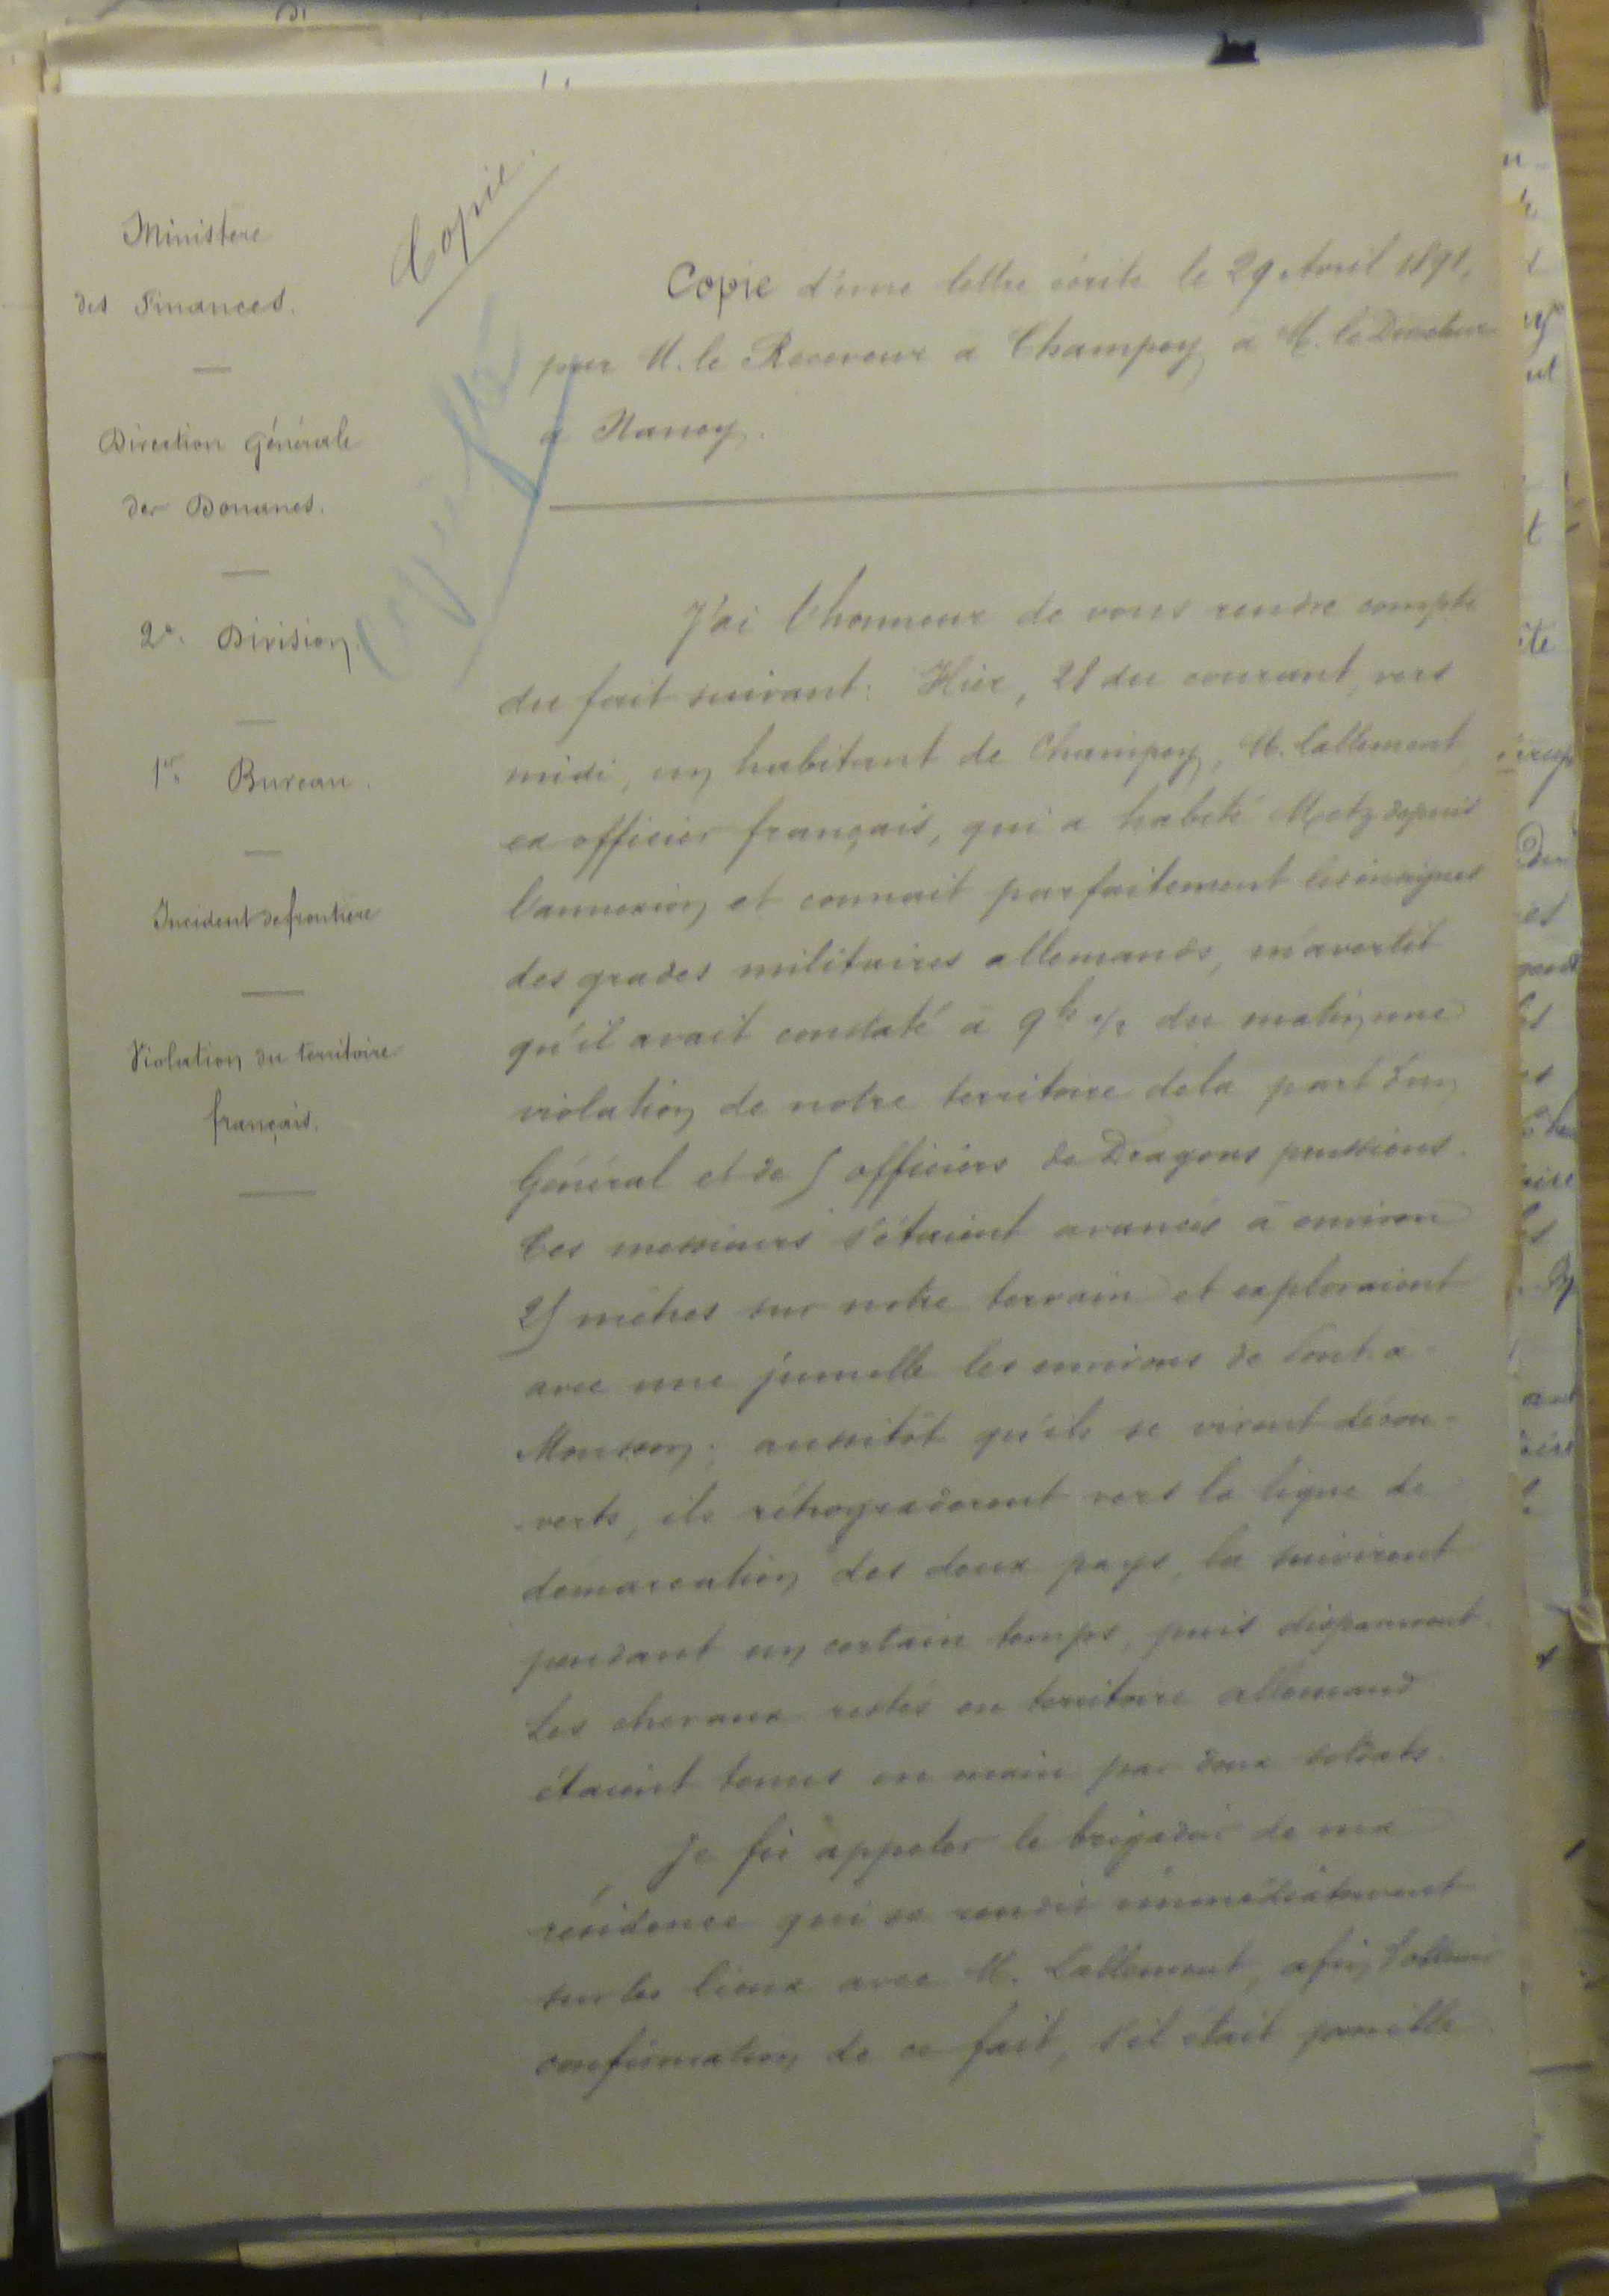 Ministère
des Finances.
Direction Générale
des Douanes.
2e. Division.
1er. Bureau.
Incident de frontière
Violation du territoire
français.
Copie.
Copie d'une lettre écrite le 29 Avril 1891,
par M. le Receveur à Champey, à M. le Directeur
à Nancy.
J'ai l'honneur de vous rendre compte
du fait suivant: Hier, 28 du courant, vers
midi, un habitant de Champey, M. Lallemont,
ex officier français, qui a habité Metz depuis
l'annexion et connait parfaitement les insignes
des grades militaires allemands, m'avertit
qu'il avait constaté à 9h 1/2 du matin, une
violation de notre territoire de la part d'un
Général et de 5 officiers de Dragons prussiens.
Ces messieurs s'étaient avancés à environ
25 mètres sur notre terrain et exploraient
avec une jumelle les environs de Pont-à-
Mousson; aussitôt qu'ils se virent décou-
-verts, ils rétrogradèrent vers la ligne de
demarcation des deux pays, la suivirent
pendant un certain temps, puis disparurent.
Les chevaux restés en territoire allemand
étaient tenus en main par deux soldats.
Je fis appeler le brigadier de ma
résidence qui se rendit immédiatement
sur les lieux avec M. Lallemont, afin d'obtenir
confirmation de ce fait, s'il était possible